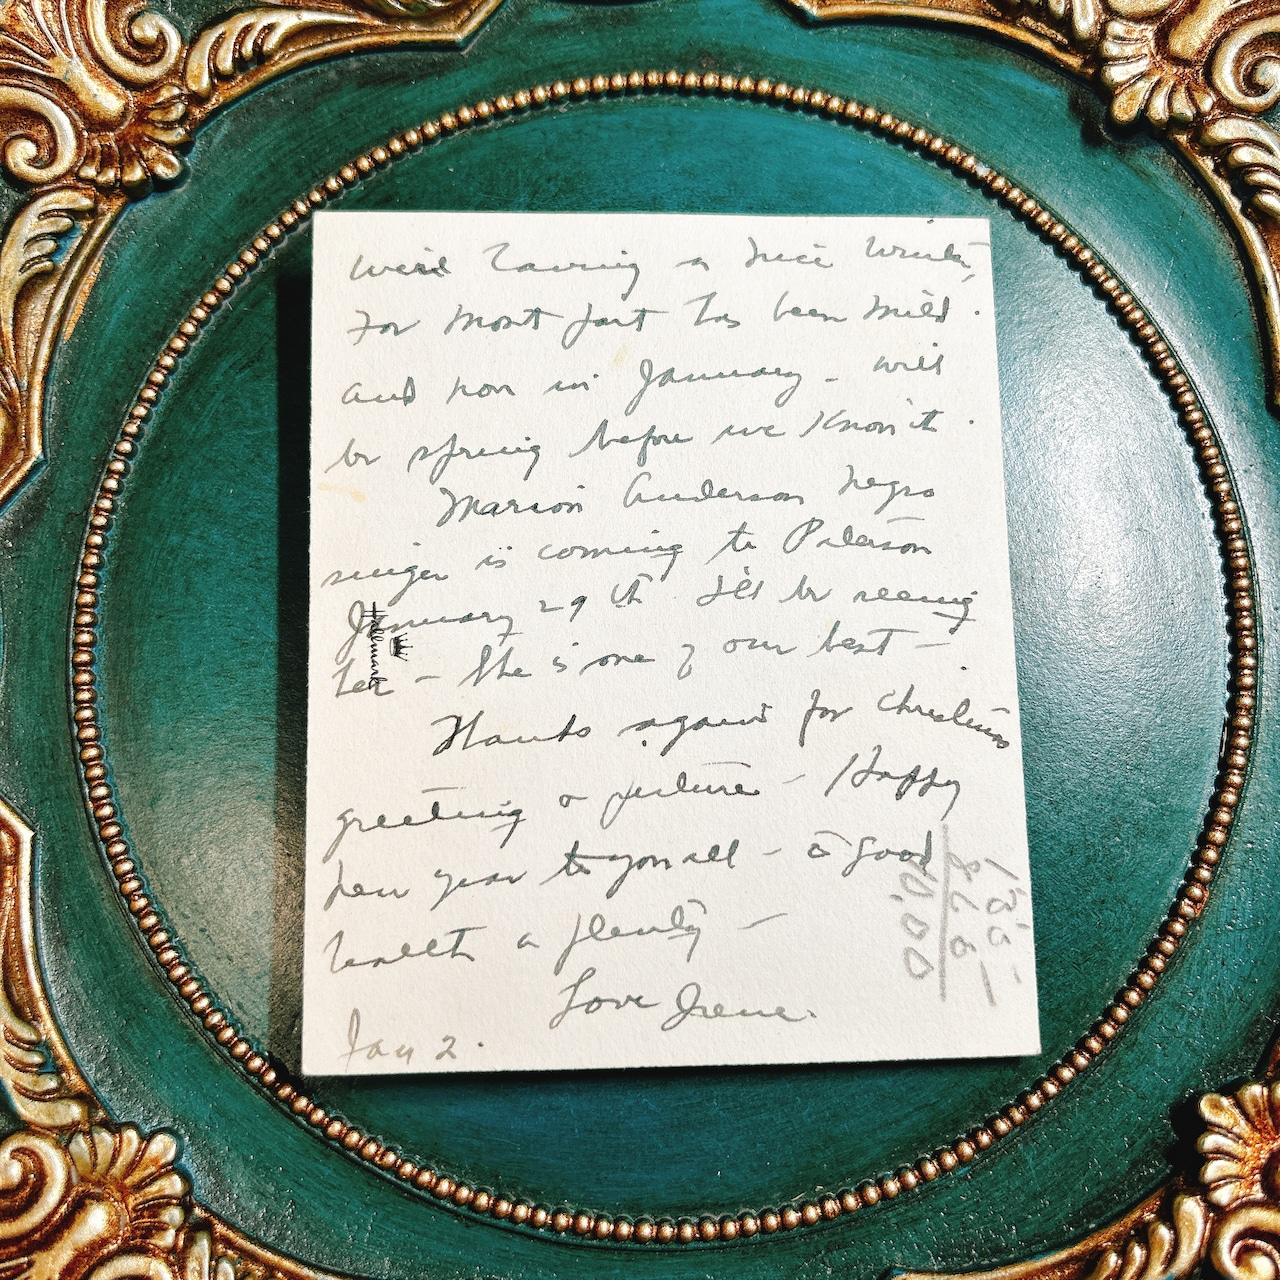 we're having a nice winter,
for most part has been mild.
and now in January - will
be spring before we know it.
Marion Anderson negro
singer is coming to Paterson
January 29th I'll be seeing
her - She is one of our best -
Thanks again for Christmas
greeting & picture - Happy
new year to you all - & good
health & plenty -
Love Irene.
Jan 2.
Hallmark
10.00